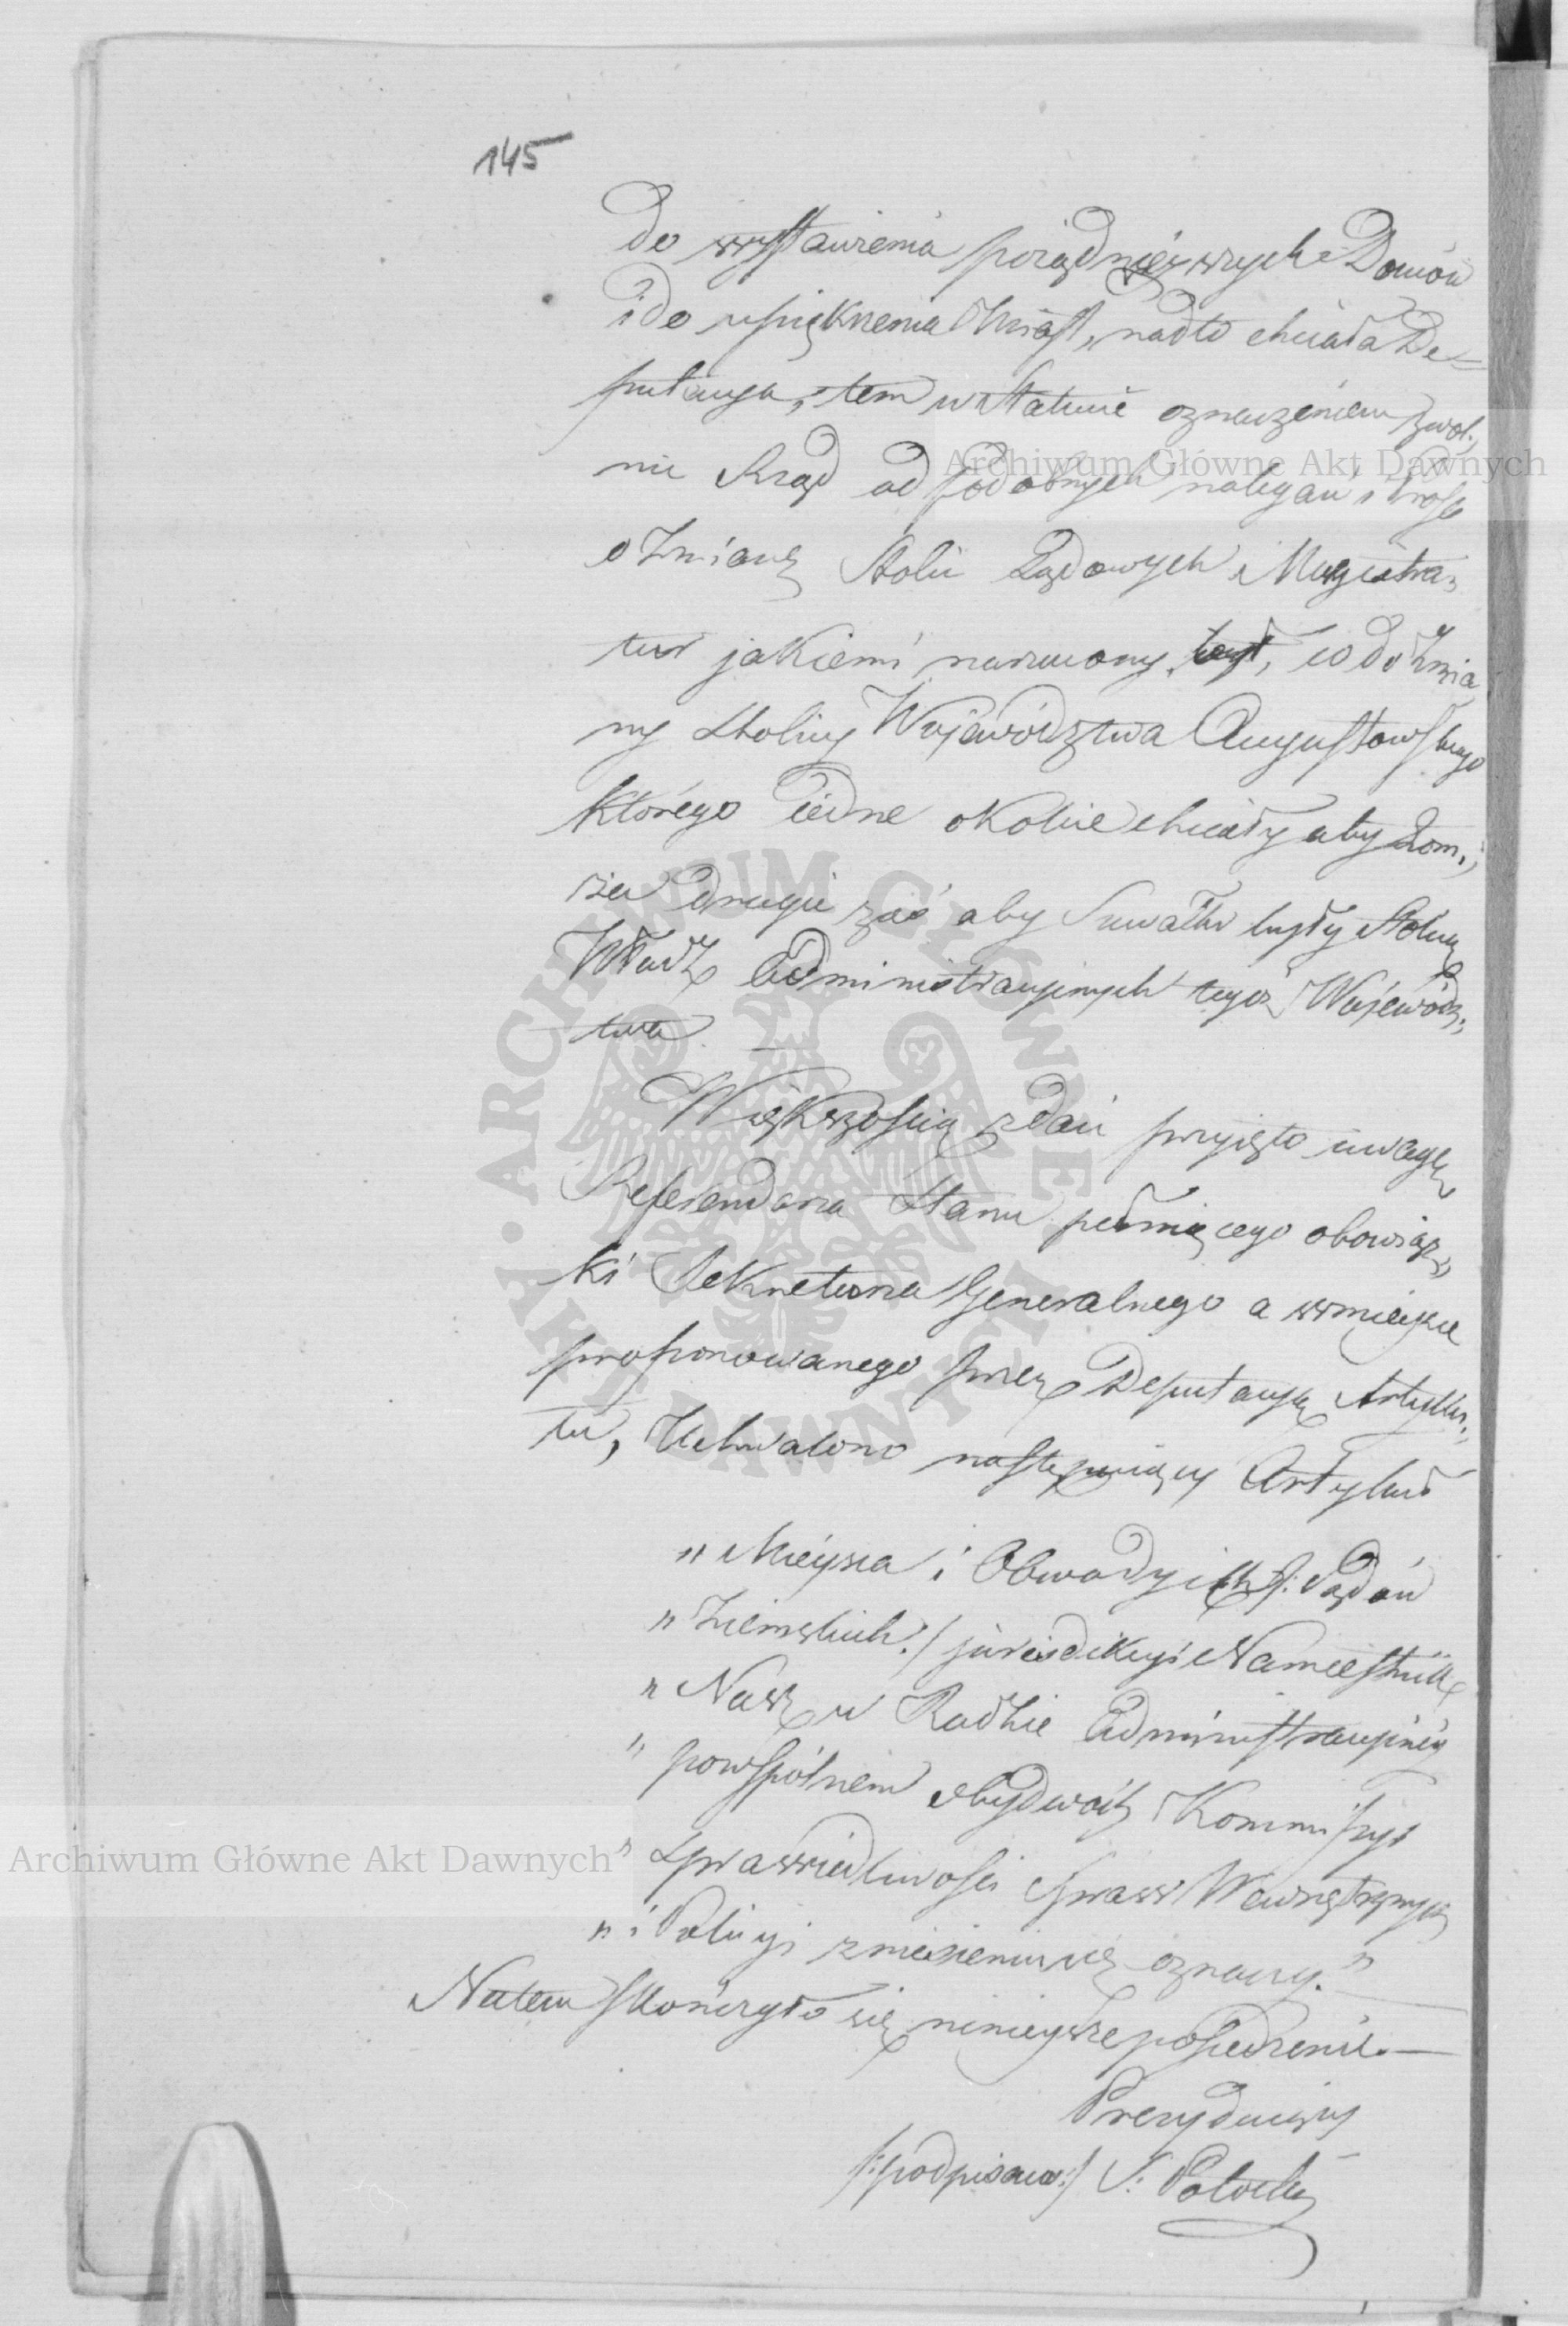 145
do wystawienia porządnieyszych Domów
i do upięknienia Miast, nadto chciała De=
putacya, tem w Statucie oznaczeniem uwol„
nić Rząd od podobnych nalegań i próśb
o Zmianę Stolic Sądowych, Magistra„
tur jakiemi narzucony był, co do Zmia„
ny Stolicy Województwa Augustowskiego
którego iedne okolice chciały aby Łom„
ża drugie zaś aby Suwałki były Stolicą
Władz Administracyinych tegoż Wojewódz„
twa. —
Większością zdań przyięto uwagę
Referendarza Stanu pełniącego obowiąz„
ki Sekretarza Generalnego a wmieysce
proponowanego przez Deputacyą Artyku„
łu, Uchwalono następuiący Artykuł
„Mieysca i Obwody ich /: Sądów
„Ziemskich :/ jurisdikcyi Namiestnik
„Nasz w Radzie Administracyiney
„powspólnem obydwóch Kommissyi
„Sprawiedliwości i Spraw Wewnętrznych
„i Policyi zniesieniu się oznaczy."
Natem skończyło się ninieysze posiedzenie. —
Prezyduiący
/: podpisano :/ S: Potocki
Archiwum Główne Akt Dawnych
ARCHIWUM GŁÓWNE AKT DAWNYCH
Archiwum Główne Akt Dawnych